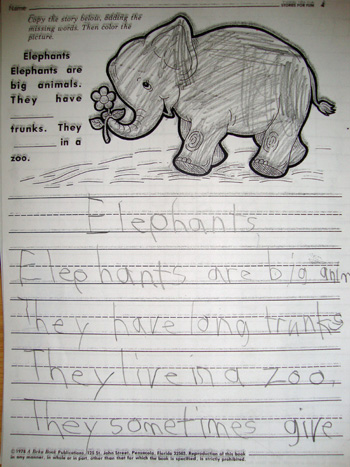 Name
4
Copy the story below, adding the
missing words. Then color the
picture.
Elephants
Elephants are
big animals.
They have
trunks. They
in a
zoo.
Elephants
Elephants are big anim
They have long trunks
They live in a zoo.
They sometimes give
© 1978 A Beka Book Publications, 125 St. John Street, Pensacola, Florida 32503. Reproduction of this book
in any manner, in whole or in part, other than that for which the book is specified, is strictly prohibited.